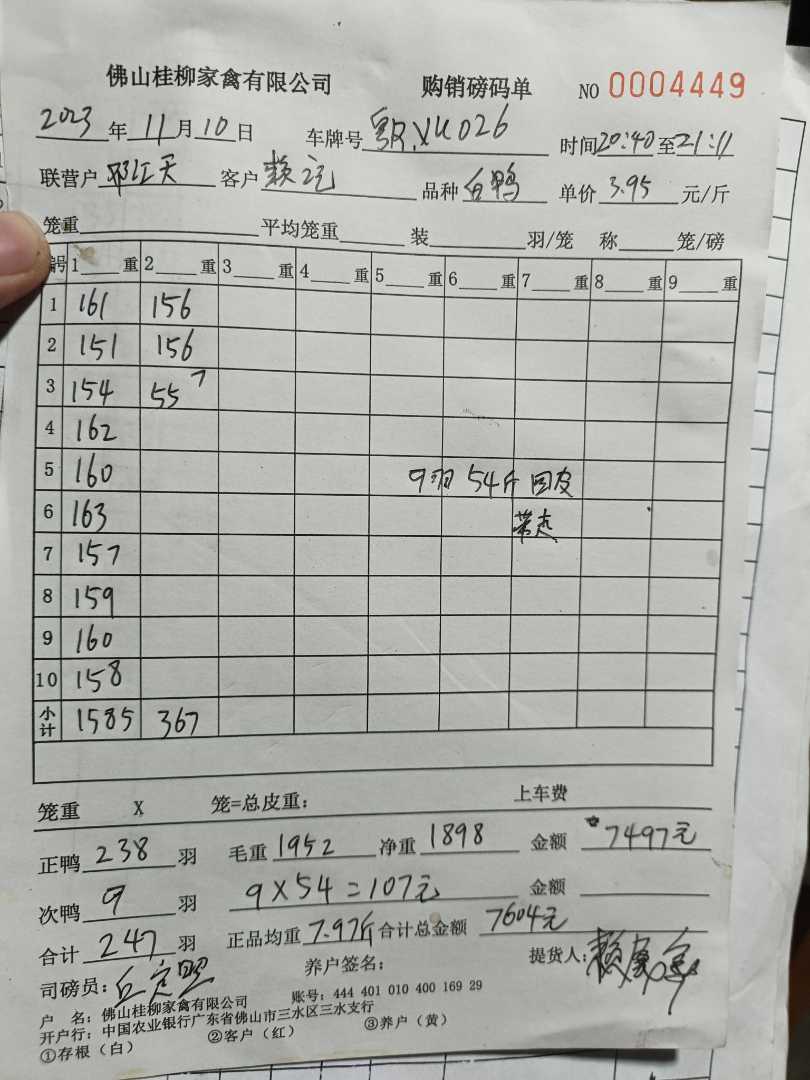 佛山桂柳家禽有限公司 购销磅码单 NO 0004449
2023年11月10日 车牌号 粤R.XU026 时间20:40至21:11
联营户 客户 赖 品种 白鸭 单价 3.95 元/斤
笼重 平均笼重 装 羽/笼 称 笼/磅
编号 1 重 2 重 3 重 4 重 5 重 6 重 7 重 8 重 9 重
1 161 156
2 151 156
3 154 55 7
4 162
5 160 9羽 54斤 回皮
6 163 带走
7 157
8 159
9 160
10 158
小计 1585 367
笼重 X 笼=总皮重: 上车费
正鸭 238 羽 毛重 1952 净重 1898 金额 7497元
次鸭 9 羽 9×54=107元 金额
合计 247 羽 正品均重 7.97斤 合计总金额 7604元
司磅员: 丘定 养户签名: 提货人: 赖
户 名: 佛山桂柳家禽有限公司 账号: 444 401 010 400 169 29
开户行: 中国农业银行广东省佛山市三水区三水支行
①存根（白） ②客户（红） ③养户（黄）